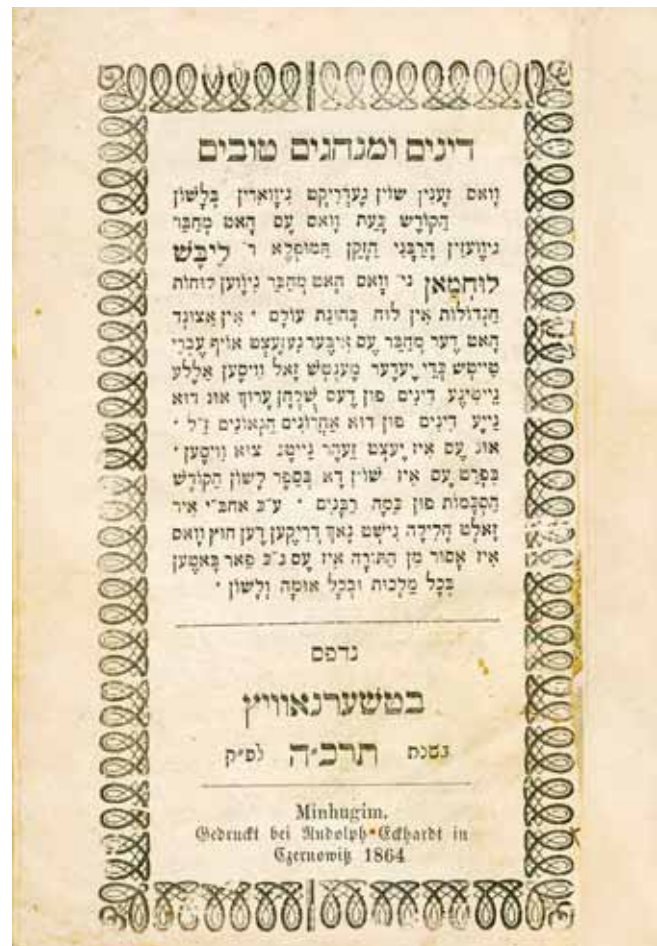 דינים ומנהגים טובים
וָואס זֶענין שוֹין גֶעדְרִיקְט גיוָוארין בְּלָשׁוֹן
הַקוֹדֶשׁ גֶעת וואס עֶם הָאט מְחַבֵּר
גיוֶועזין הָרַבָּנִי הַזָקֵן הַמוּפְלָא ר׳ לֵיבֶּשׁ
לוּחְמַאן ני׳ וָואס הָאט מְחַבֵּר גיוֶוען לוּחוֹת
הַגְדוֹלוֹת אין לוּחַ כְּהוּנַת עוֹלָם • אין אַצוּנְד
הָאט דֶער מְחַבֵּר עֶם אִיבֶּער גֶעזֶעצְט אוֹיף עִבְרֵי
טייטש כְּדֵי יֶעדֶער מֶענְטְשׁ זָאל וויסֶען אַללֶע
נֵייטִיגֶע דינים פון דֶעם שֻׁלְחָן עָרוּךְ אוּנ דוא
נַייֶע דינים פון דוא אַחֲרוֹנִים הַגְאוֹנִים ז״ל •
אונ עֶם אִיז יֶעצְט זֶעהר נֵייטג צוּא וויסֶען •
בִּפְרַט עֶם אִיז שׁוֹין דָא בְּסֵפֶר לָשׁוֹן הַקוֹדֶשׁ
הַסְכָּמוֹת פוּן כַּמָה רַבָּנִים • ע״כ אחב״י איר
זָאלְט חָלִילָה נישְׁט נָאךְ דְרִיקֶען דֶען חוּץ וָואס
אִיז אָסוּר מִן הַתּוֹרָה אִיז עֶם ג״כ פַאר בָּאטֶען
בְּכָל מַלְכוּת וּבְכָל אוּמָה וְלָשׁוֹן •
נדפס
בטשערנאוויץ
בשנת תרכ״ה לפ״ק
Minhugim.
Gedruckt bei Rudolph Eckhardt in
Czernowitz 1864